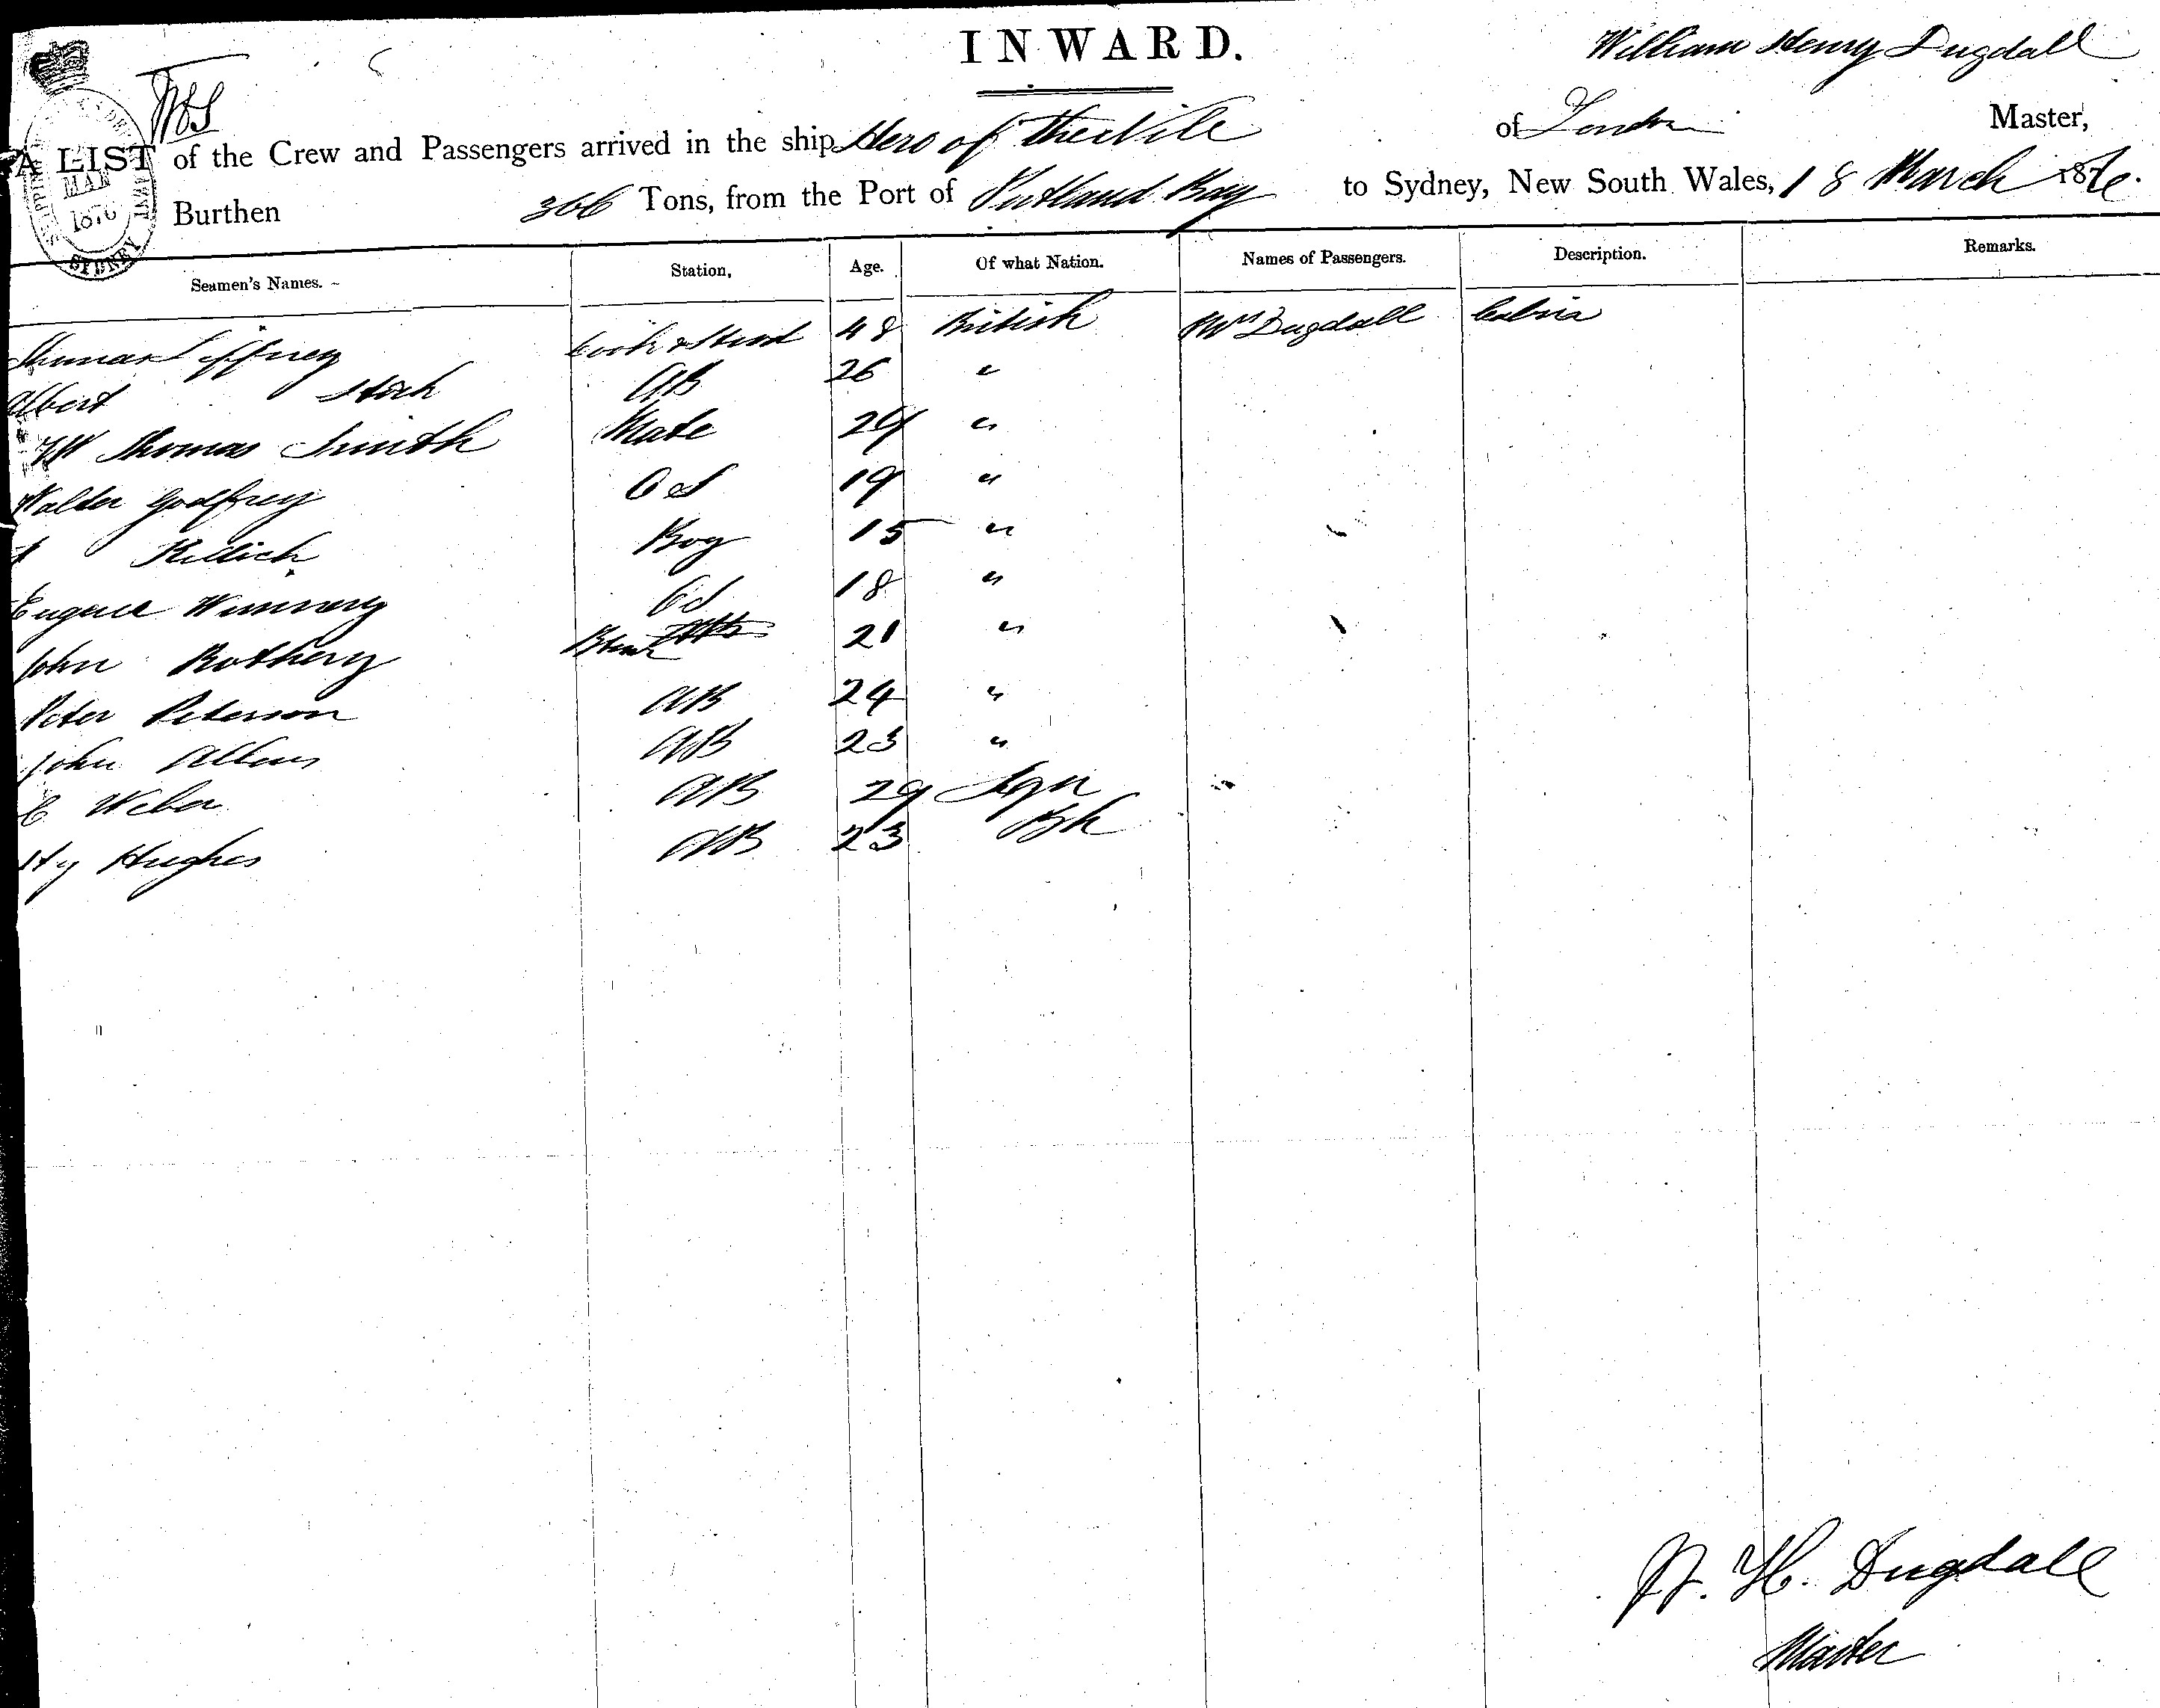 INWARD.
William Henry Dugdall
A LIST of the Crew and Passengers arrived in the ship Hero of the Nile of London Master,
Burthen 366 Tons, from the Port of Portland Bay to Sydney, New South Wales, 18 March 1876.
MAR
1876
SYDNEY
Seamen's Names. Station. Age. Of what Nation. Names of Passengers. Description. Remarks.
Thomas Jeffrey Cook & Stewd 48 British Mrs Dugdall Cabin
Albert AB 26 "
Thomas Smith Mate 29 "
Walter Godfrey OS 19 "
Boy 15 "
Eugene OS 18 "
John Rothery 21 "
Peter Peterson AB 24 "
John AB 23 "
C Weber AB 29 Fgn
Hy Hughes AB 23 Bh
W. H. Dugdall
Master